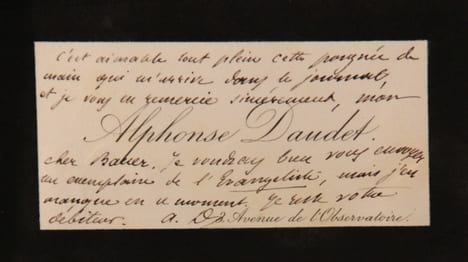 c'est aimable tout plein cette poignée de
main qui m'arrive dans le journal,
et je vous en remercie sincèrement, mon
Alphonse Daudet.
cher Bauer. Je voudrais bien vous envoyer
un exemplaire de l'Evangéliste, mais j'en
manque en ce moment. Je reste votre
débiteur. A. D.
3, Avenue de l'Observatoire.